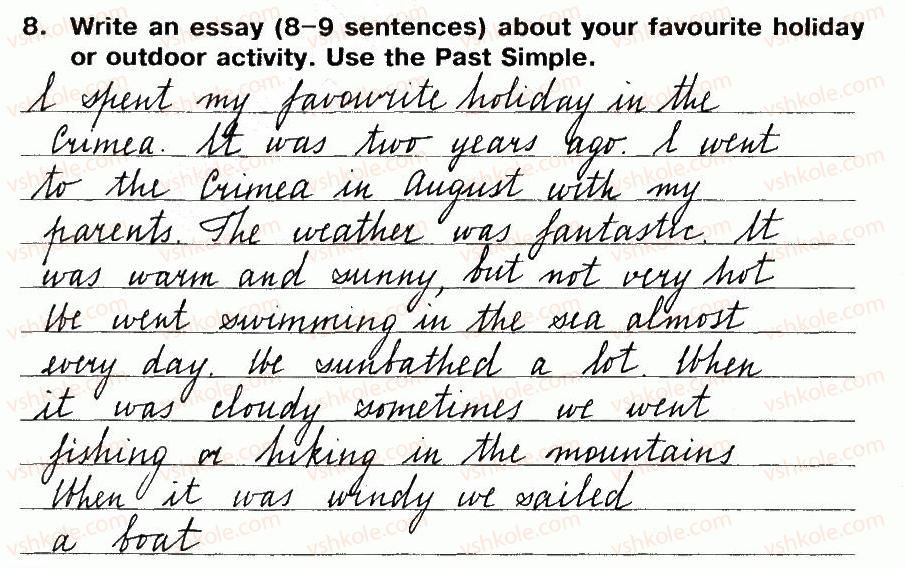 8. Write an essay (8–9 sentences) about your favourite holiday
or outdoor activity. Use the Past Simple.
I spent my favourite holiday in the
Crimea. It was two years ago. I went
to the Crimea in August with my
parents. The weather was fantastic. It
was warm and sunny, but not very hot
We went swimming in the sea almost
every day. We sunbathed a lot. When
it was cloudy sometimes we went
fishing or hiking in the mountains
When it was windy we sailed
a boat